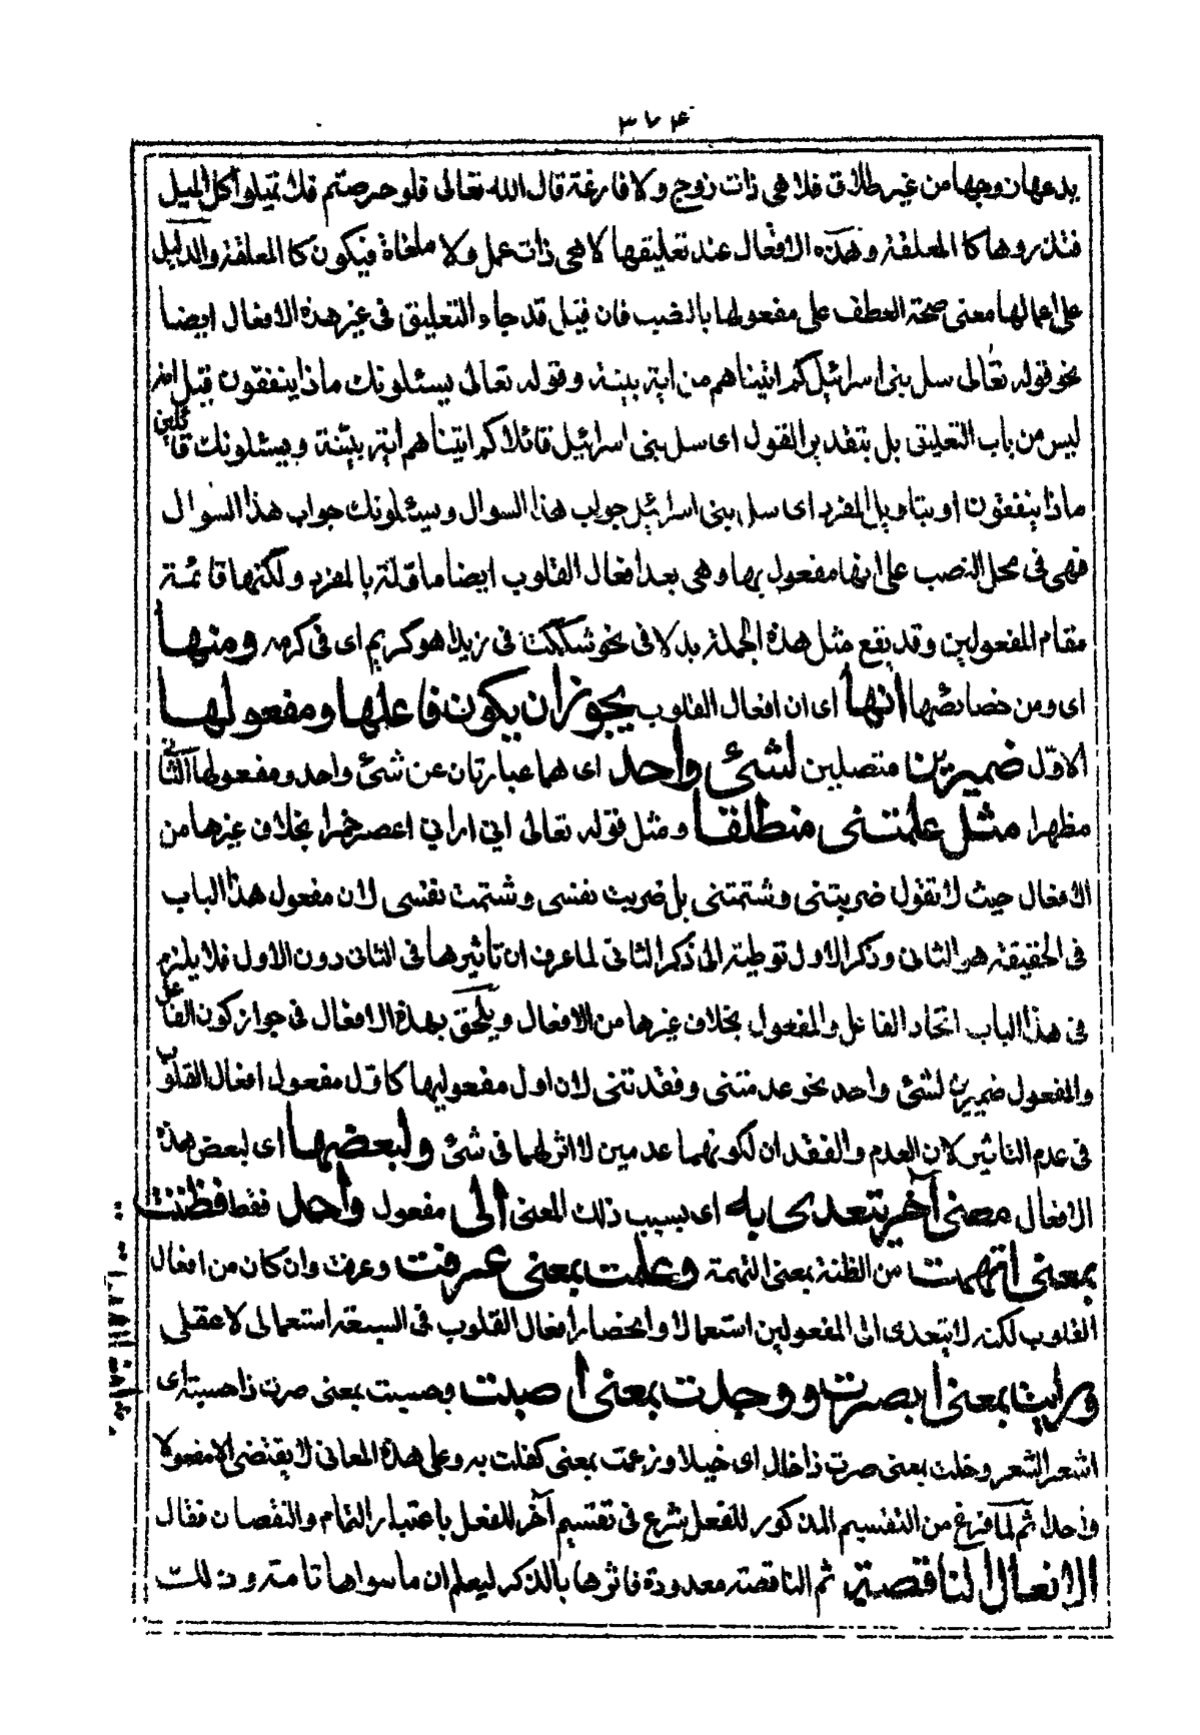 ٣٧٤
يدعها زوجها من غير طلاق فلا هي ذات زوج ولا فارغة قال الله تعالى فلو حرصتم فلا تميلوا كل الميل
فتذروها كالمعلقة وهذه الافعال عند تعليقها لا هي ذات عمل ولا ملغاة فيكون كالمعلقة والدليل
على اعمالها معنى صحة العطف على مفعولها بالنصب فان قيل قد جاء التعليق في غير هذه الافعال ايضا
نحو قوله تعالى سل بنى اسرائيل كم اتيناهم من اية بينة وقوله تعالى يسئلونك ماذا ينفقون قيل انه
ليس من باب التعليق بل بتقدير القول اى سل بنى اسرائيل قائلا كم اتيناهم اية بينة ويسئلونك قائلين
ماذا ينفقون او بتاويل المفرد اى سل بنى اسرائيل جواب هذا السوال ويسئلونك جواب هذا السوال
فهى فى محل النصب على انها مفعول بها وهى بعد افعال القلوب ايضا ماولة بالمفرد ولكنها قائمة
مقام المفعولين وقد يقع مثل هذه الجملة بدلا فى نحو شككت فى زيد اهو كريم اى فى كرمه ومنها
اى ومن خصائصها انها اى ان افعال القلوب يجوز ان يكون فاعلها ومفعولها
الاول ضميرين متصلين لشئ واحد اى هما عبارتان عن شئ واحد ومفعولها الثانى
مظهرا مثل علمتنى منطلقا ومثل قوله تعالى انى ارانى اعصر خمرا بخلاف غيرها من
الافعال حيث لا تقول ضربتنى وشتمتنى بل ضربت نفسى وشتمت نفسى لان مفعول هذا الباب
فى الحقيقة هو الثانى وذكر الاول توطية الى ذكر الثانى لما عرف ان تأثيرها فى الثانى دون الاول فلا يلزم
فى هذا الباب اتحاد الفاعل والمفعول بخلاف غيرها من الافعال ويلحق بهذه الافعال فى جواز كون الفاعل
والمفعول ضميرين لشئ واحد نحو عدمتنى وفقدتنى لان اول مفعوليها كاول مفعول افعال القلوب
فى عدم التاثير لان العدم والفقدان لكونهما عدمين لا اثر لهما فى شئ ولبعضها اى لبعض هذه
الافعال معنى آخر يتعدى به اى بسبب ذلك المعنى الى مفعول واحد فقط فظننت
بمعنى اتهمت من الظنة بمعنى التهمة وعلمت بمعنى عرفت وعرفت وان كان من افعال
القلوب لكنه لا يتعدى الى المفعولين استعمالا وانحصار افعال القلوب فى السبعة استعمالى لا عقلى
ورايت بمعنى ابصرت ووجدت بمعنى اصبت وحسبت بمعنى صرت ذا حسبة اى
اشعر الشعر وخلت بمعنى صرت ذا خال اى خيلا وزعمت بمعنى كفلت به وعلى هذه المعانى لا يقتضى الا مفعولا
واحدا ثم لما فرغ من التقسيم المذكور للفعل شرع فى تقسيم آخر للفعل باعتبار التمام والنقصان فقال
الافعال الناقصة ثم الناقصة معدودة فاثرها بالذكر ليعلم ان ما سواها تامة وتلك